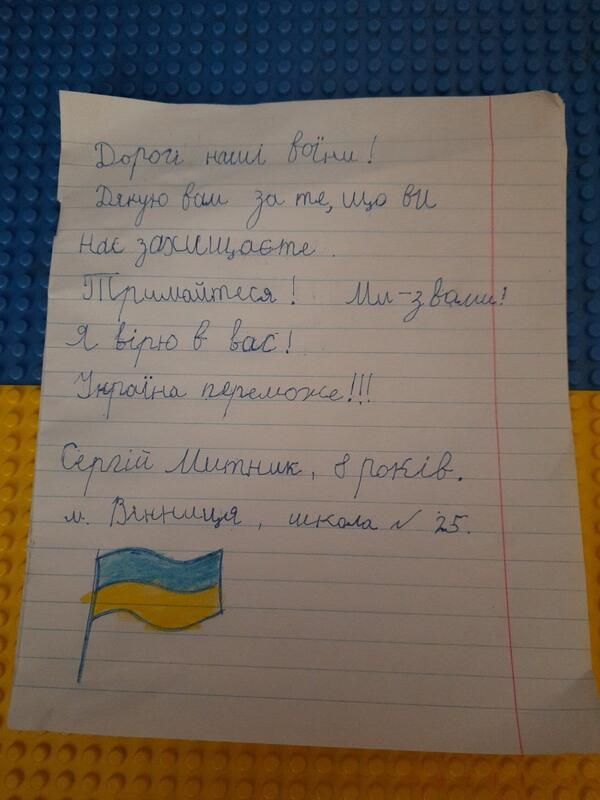 Дорогі наші воїни!
Дякую вам за те, що ви
нас захищаєте.
Тримайтеся! Ми-з вами!
Я вірю в вас!
Україна переможе!!!
Сергій Митник, 8 років.
м. Вінниця, школа № 25.